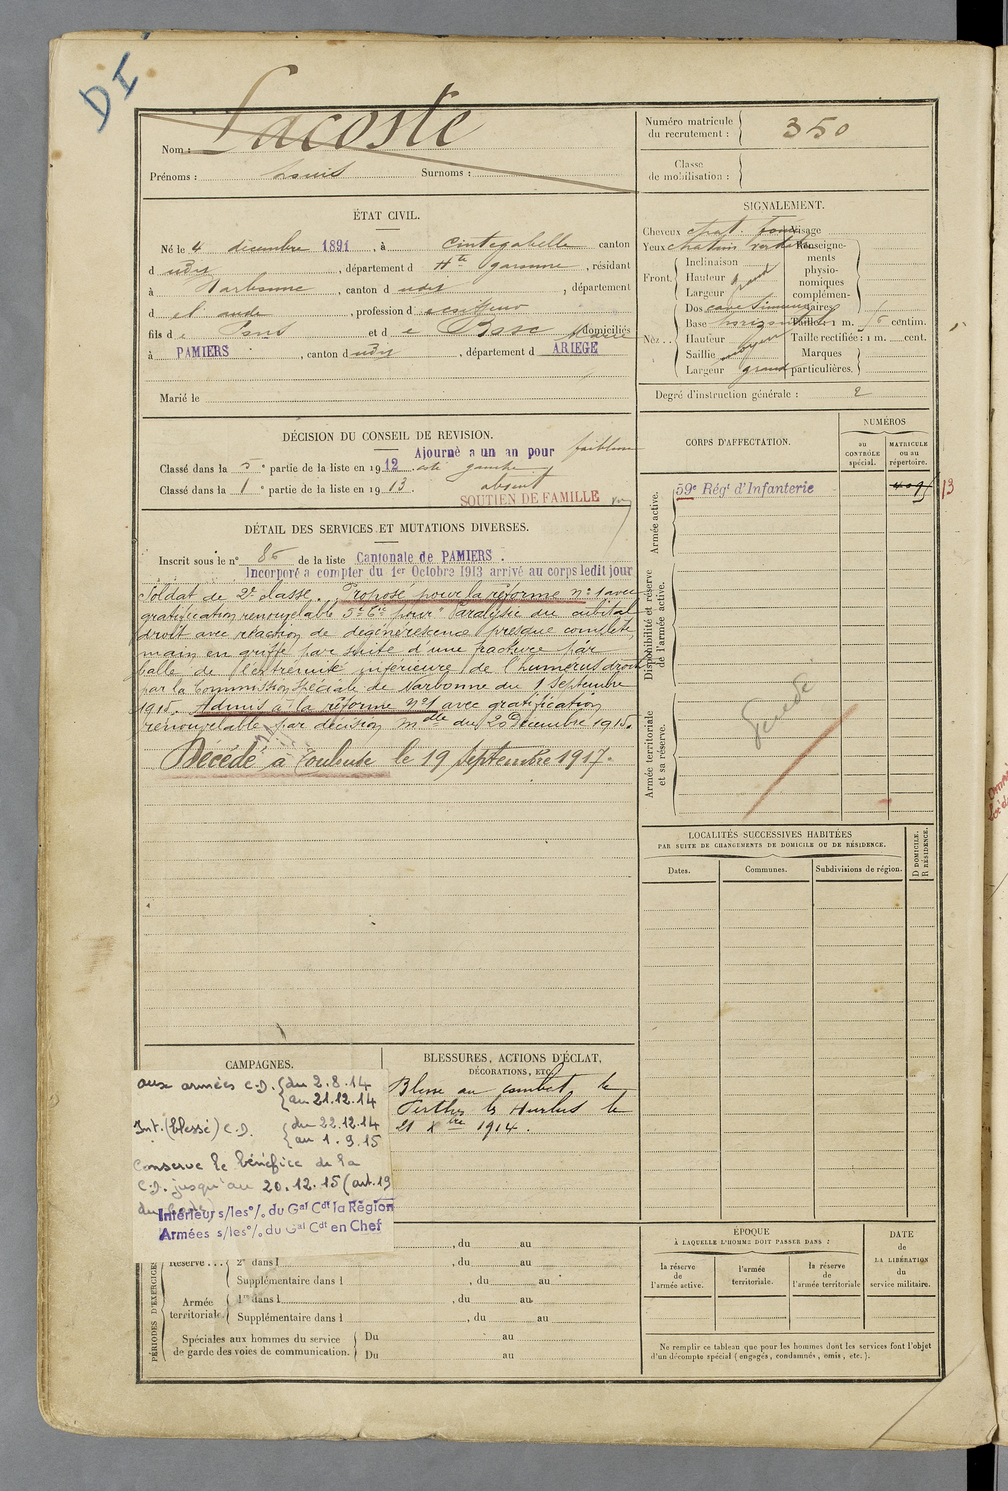 DI
Nom : Lacoste
Prénoms : Louis Surnoms :
Numéro matricule
du recrutement : 350
Classe
de mobilisation :
ÉTAT CIVIL.
Né le 4 décembre 1891, à Cintegabelle canton
d udit, département d Hte Garonne, résidant
à Narbonne, canton d udit, département
d el aude, profession d
fils d e Paul et d e domiciliés
à PAMIERS, canton d udit, département d ARIEGE
Marié le
SIGNALEMENT.
Cheveux chat. foncé visage
Yeux chatain verdatre
Renseigne-
ments
physio-
nomiques
complémen-
taires
Front.
Inclinaison
Hauteur grand
Largeur
Nez ..
Dos cave sinueux
Base horizontal
Hauteur moyen
Saillie
Largeur grand
Taille : 1 m. 56 centim.
Taille rectifiée : 1 m. cent.
Marques
particulières.
Degré d'instruction générale : 2
DÉCISION DU CONSEIL DE REVISION.
Ajourné a un an pour faiblesse
Classé dans la 5e partie de la liste en 1912. gauche
Classé dans la 1e partie de la liste en 1913. absent
SOUTIEN DE FAMILLE
DÉTAIL DES SERVICES ET MUTATIONS DIVERSES.
Inscrit sous le n° 86 de la liste Cantonale de PAMIERS.
Incorporé a compter du 1er Octobre 1913 arrivé au corps ledit jour
Soldat de 2e classe. Proposé pour la réforme n° 1 avec
gratification renouvelable 5e Cie pour "Paralysie du cubital
droit avec réaction de dégénérescence presque complète,
main en griffe par suite d'une fracture par
balle de l'extrémité inférieure de l'humérus droit
par la Commission Spéciale de Narbonne du 1 Septembre
1915. Admis à la réforme n°1 avec gratification
renouvelable par décision Mlle du 20 Décembre 1915.
Décédé à Toulouse le 19 Septembre 1917.
CORPS D'AFFECTATION.
NUMÉROS
au
CONTRÔLE
spécial.
MATRICULE
ou au
répertoire.
Armée active.
59e Régt d'Infanterie
13
Disponibilité et réserve
de l'armée active.
Armée territoriale
et sa réserve.
Décédé
LOCALITÉS SUCCESSIVES HABITÉES
PAR SUITE DE CHANGEMENTS DE DOMICILE OU DE RÉSIDENCE.
Dates.
Communes.
Subdivisions de région.
D DOMICILE.
R RÉSIDENCE.
CAMPAGNES.
aux armées C.D. du 2.8.14
au 21.12.14
Int. (blessé) C.D. du 22.12.14
au 1.9.15
Conserve le bénéfice de la
C.D. jusqu'au 20.12.15 (art. 19
du Code)
Intérieur s/les o/. du Gal Cdt la Région
Armées s/les o/. du Gal Cdt en Chef
BLESSURES, ACTIONS D'ÉCLAT,
DÉCORATIONS, ETC.
Blessé au combat de
Perthes les Hurlus le
21 Xbre 1914.
PÉRIODES D'EXERCICES
, du au
Réserve ... 2e dans l , du au
Supplémentaire dans l , du au
Armée
territoriale.
1re dans l , du au
Supplémentaire dans l , du au
Spéciales aux hommes du service
de garde des voies de communication.
Du au
Du au
ÉPOQUE
À LAQUELLE L'HOMME DOIT PASSER DANS :
la réserve
de
l'armée active.
l'armée
territoriale.
la réserve
de
l'armée territoriale
DATE
de
LA LIBÉRATION
du
service militaire.
Ne remplir ce tableau que pour les hommes dont les services font l'objet
d'un décompte spécial (engagés, condamnés, omis, etc.).